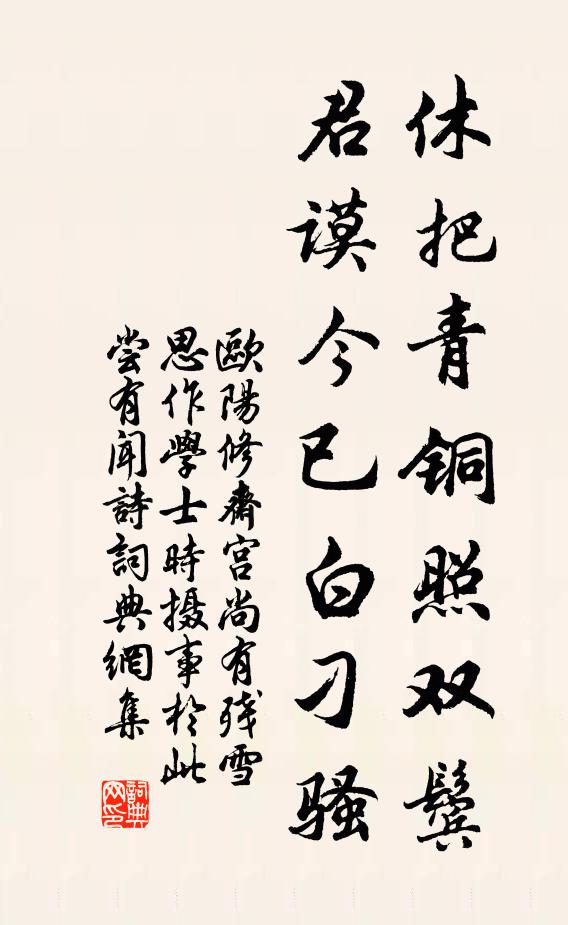 休把青铜照双鬓
君谟今已白刁骚
歐陽修齋宫尚有残雪
思作學士時摄事於此
尝有闻詩詞典網集
詞典网印